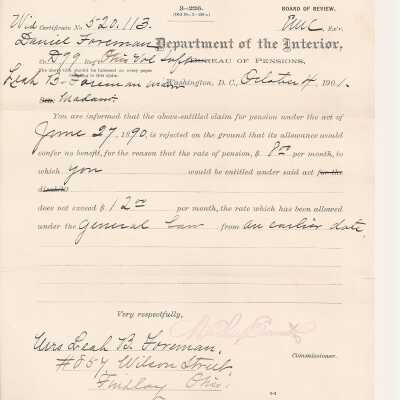 3—225.
BOARD OF REVIEW.
Wid Certificate No. 520.113.
Daniel Foreman
Department of the Interior,
BUREAU OF PENSIONS,
Leah B. Foreman
Washington, D. C., October 4, 1901.
Madam:
You are informed that the above-entitled claim for pension under the act of
June 27, 1890, is rejected on the ground that its allowance would
confer no benefit, for the reason that the rate of pension, $ 8.00 per month, to
which you would be entitled under said act
does not exceed $ 12.00 per month, the rate which has been allowed
under the General Law from an earlier date.
Very respectfully,
Commissioner.
Mrs Leah B. Foreman,
Wilson Street
Findlay Ohio.